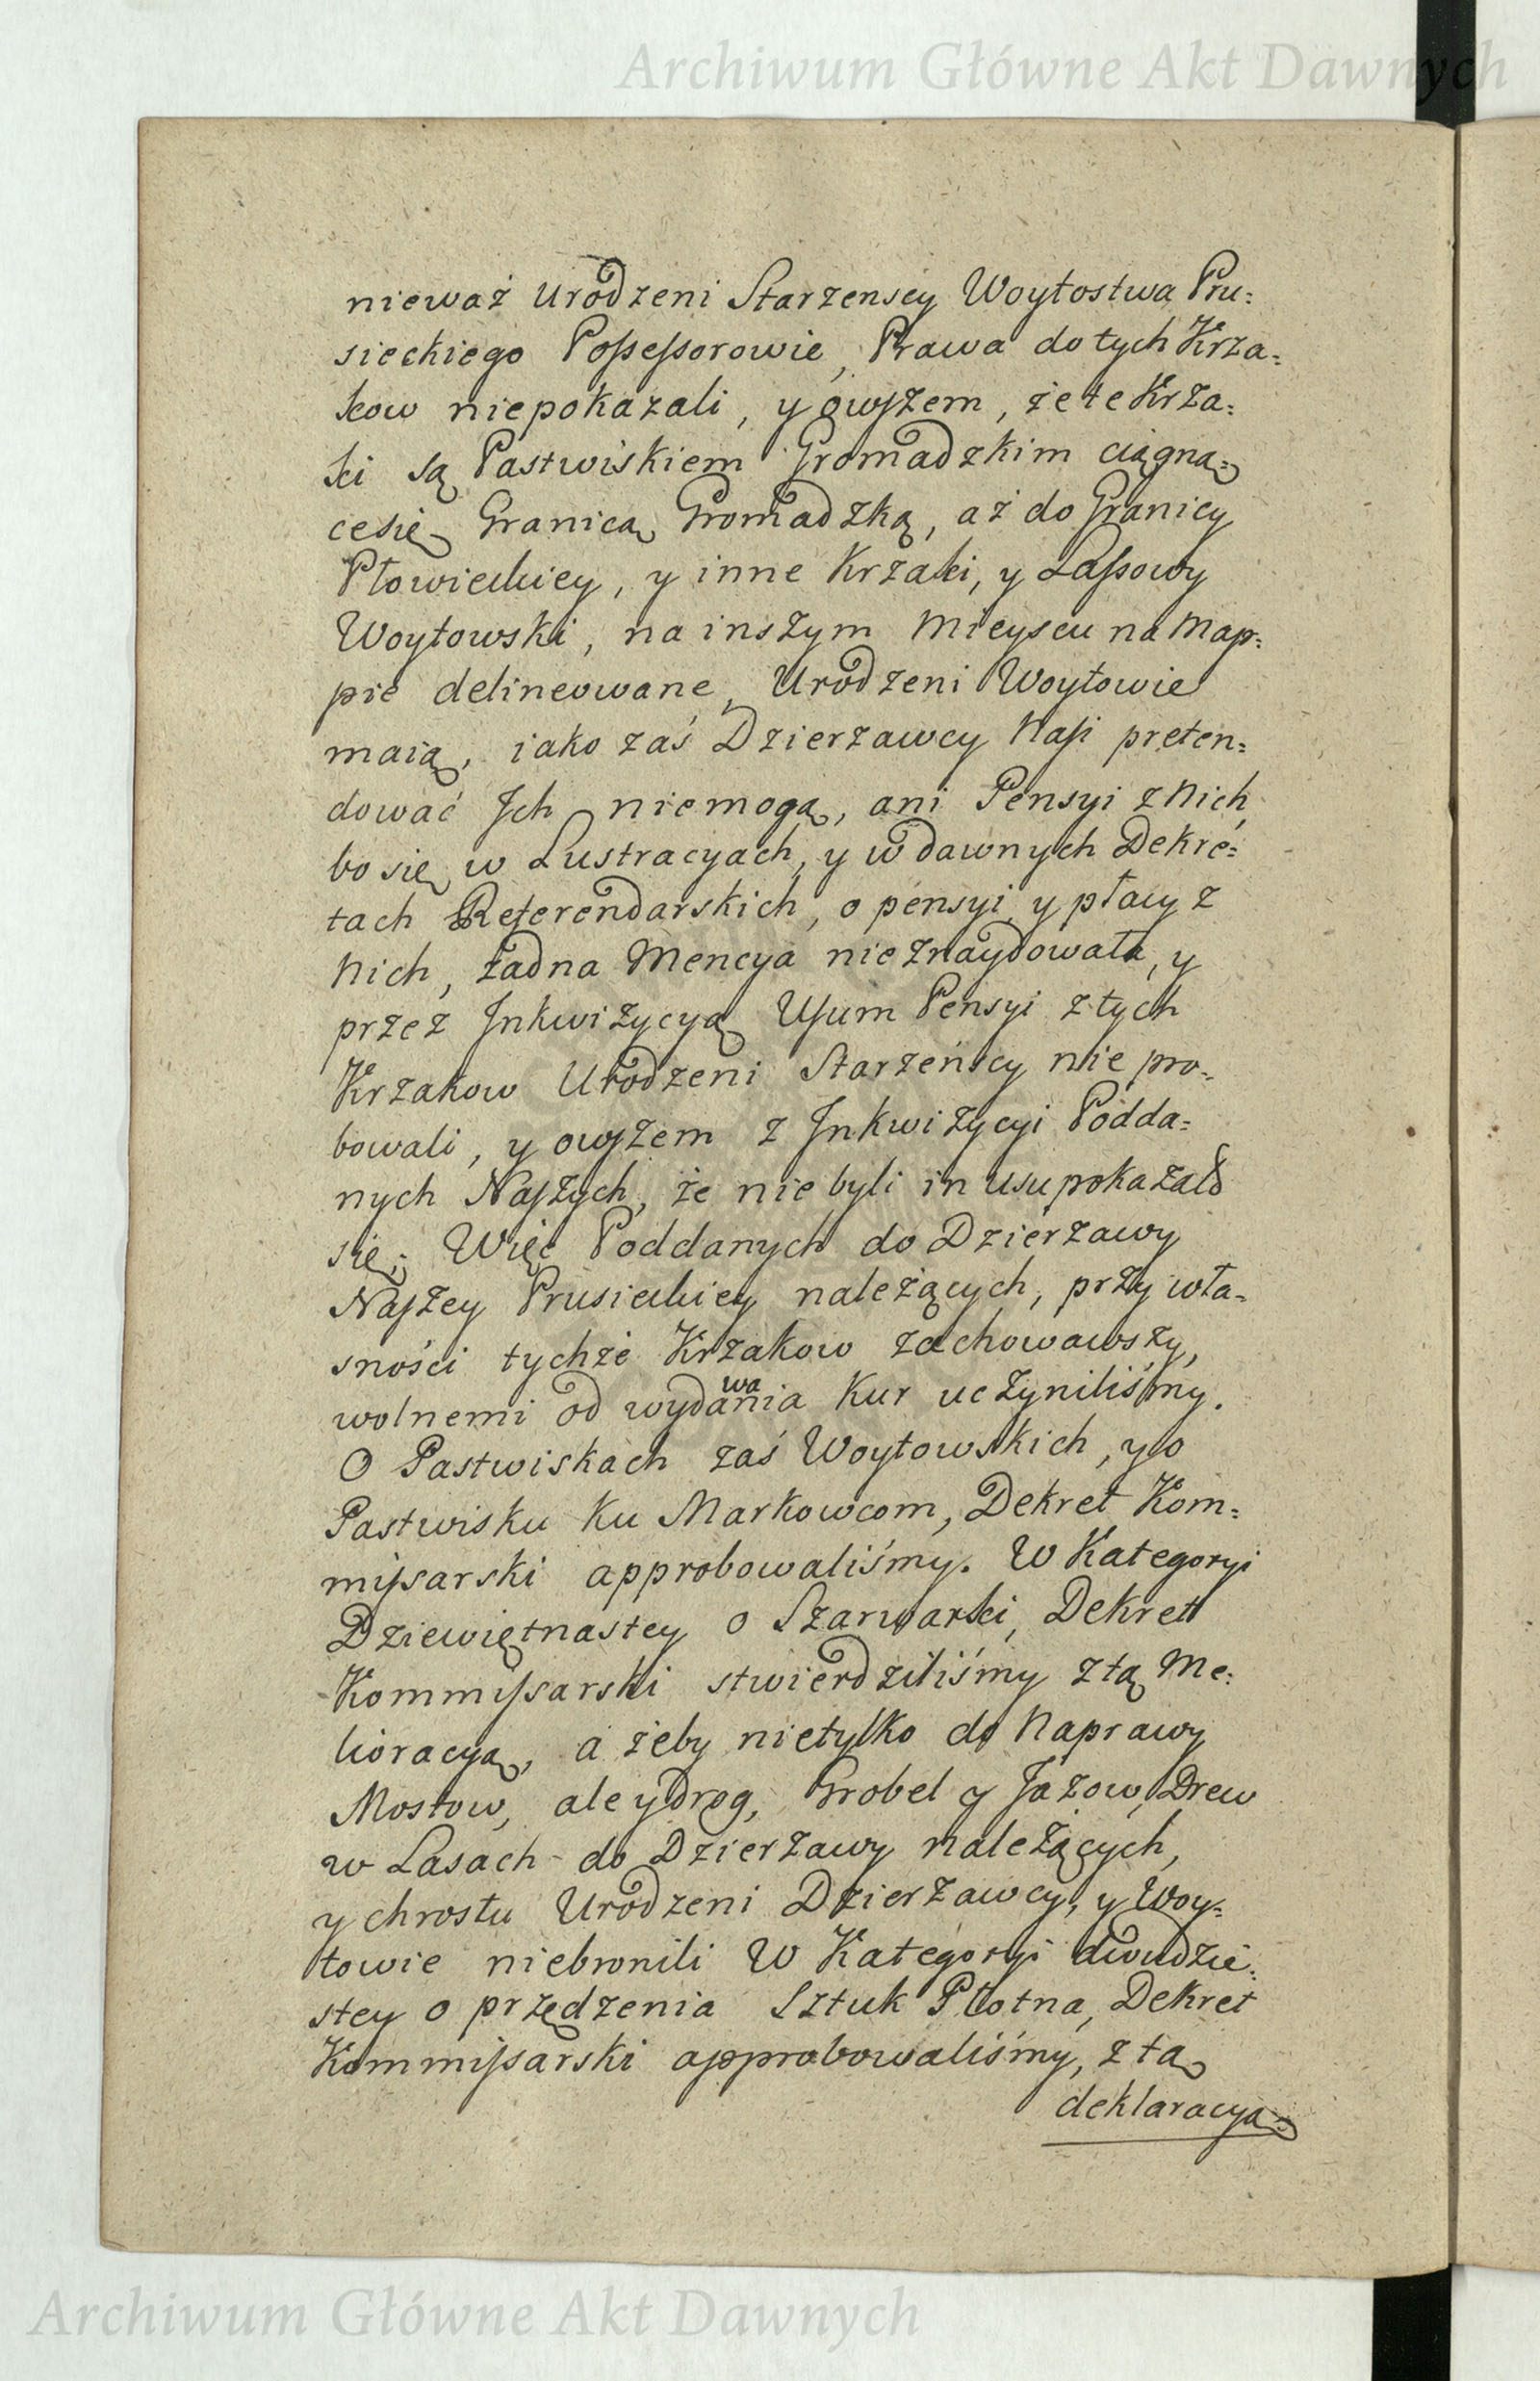 Archiwum Główne Akt Dawnych
nieważ Urodzeni Starzenscy Woytostwa Pru:
sieckiego Possessorowie, Prawa do tych Krza:
kow niepokazali, y owszem, że te Krza:
ki są Pastwiskiem Gromadzkim ciągną:
ce się Granicą Gromadzką, aż do Granicy
Płowieckiey, y inne Krzaki, y Lassowy
Woytowski, na inszym Mieyscu na Map:
pie delineowane, Urodzeni Woytowie
maią, iako zaś Dzierzawcy Nasi preten:
dować Ich niemogą, ani Pensyi z Nich,
bo się w Lustracyach, y w dawnych Dekre:
tach Referendarskich, o pensyi y płacy z
Nich, żadna Mencya nie znaydowała, y
przez Inkwizycyą Usum Pensyi z tych
Krzakow Urodzeni Starzeńscy nie pro:
bowali, y owszem z Inkwizycyi Podda:
nych Naszych, że nie byli in usu pokazało
się; Więc Poddanych do Dzierzawy
Naszey Prusieckiey należących, przy wła:
sności tychże Krzakow zachowawszy,
wolnemi od wydawania Kur uczyniliśmy.
O Pastwiskach zaś Woytowskich, y o
Pastwisku Ku Markowcom, Dekret Kom:
missarski approbowaliśmy. W Kategoryi
Dziewiętnastey o Szarwarki, Dekrett
Kommissarski stwierdziliśmy z tą Me:
lioracyą, a żeby nietylko do Naprawy
Mostow, ale y Drog, Grobel y Jazow, Drew
w Lasach do Dzierzawy należących,
y chrostu Urodzeni Dzierzawcy, y Woy:
towie niebronili W Kategoryi dwudzie:
stey o przędzenia Sztuk Płotna, Dekret
Kommissarski approbowaliśmy, z tą
deklaracyą:
Archiwum Główne Akt Dawnych